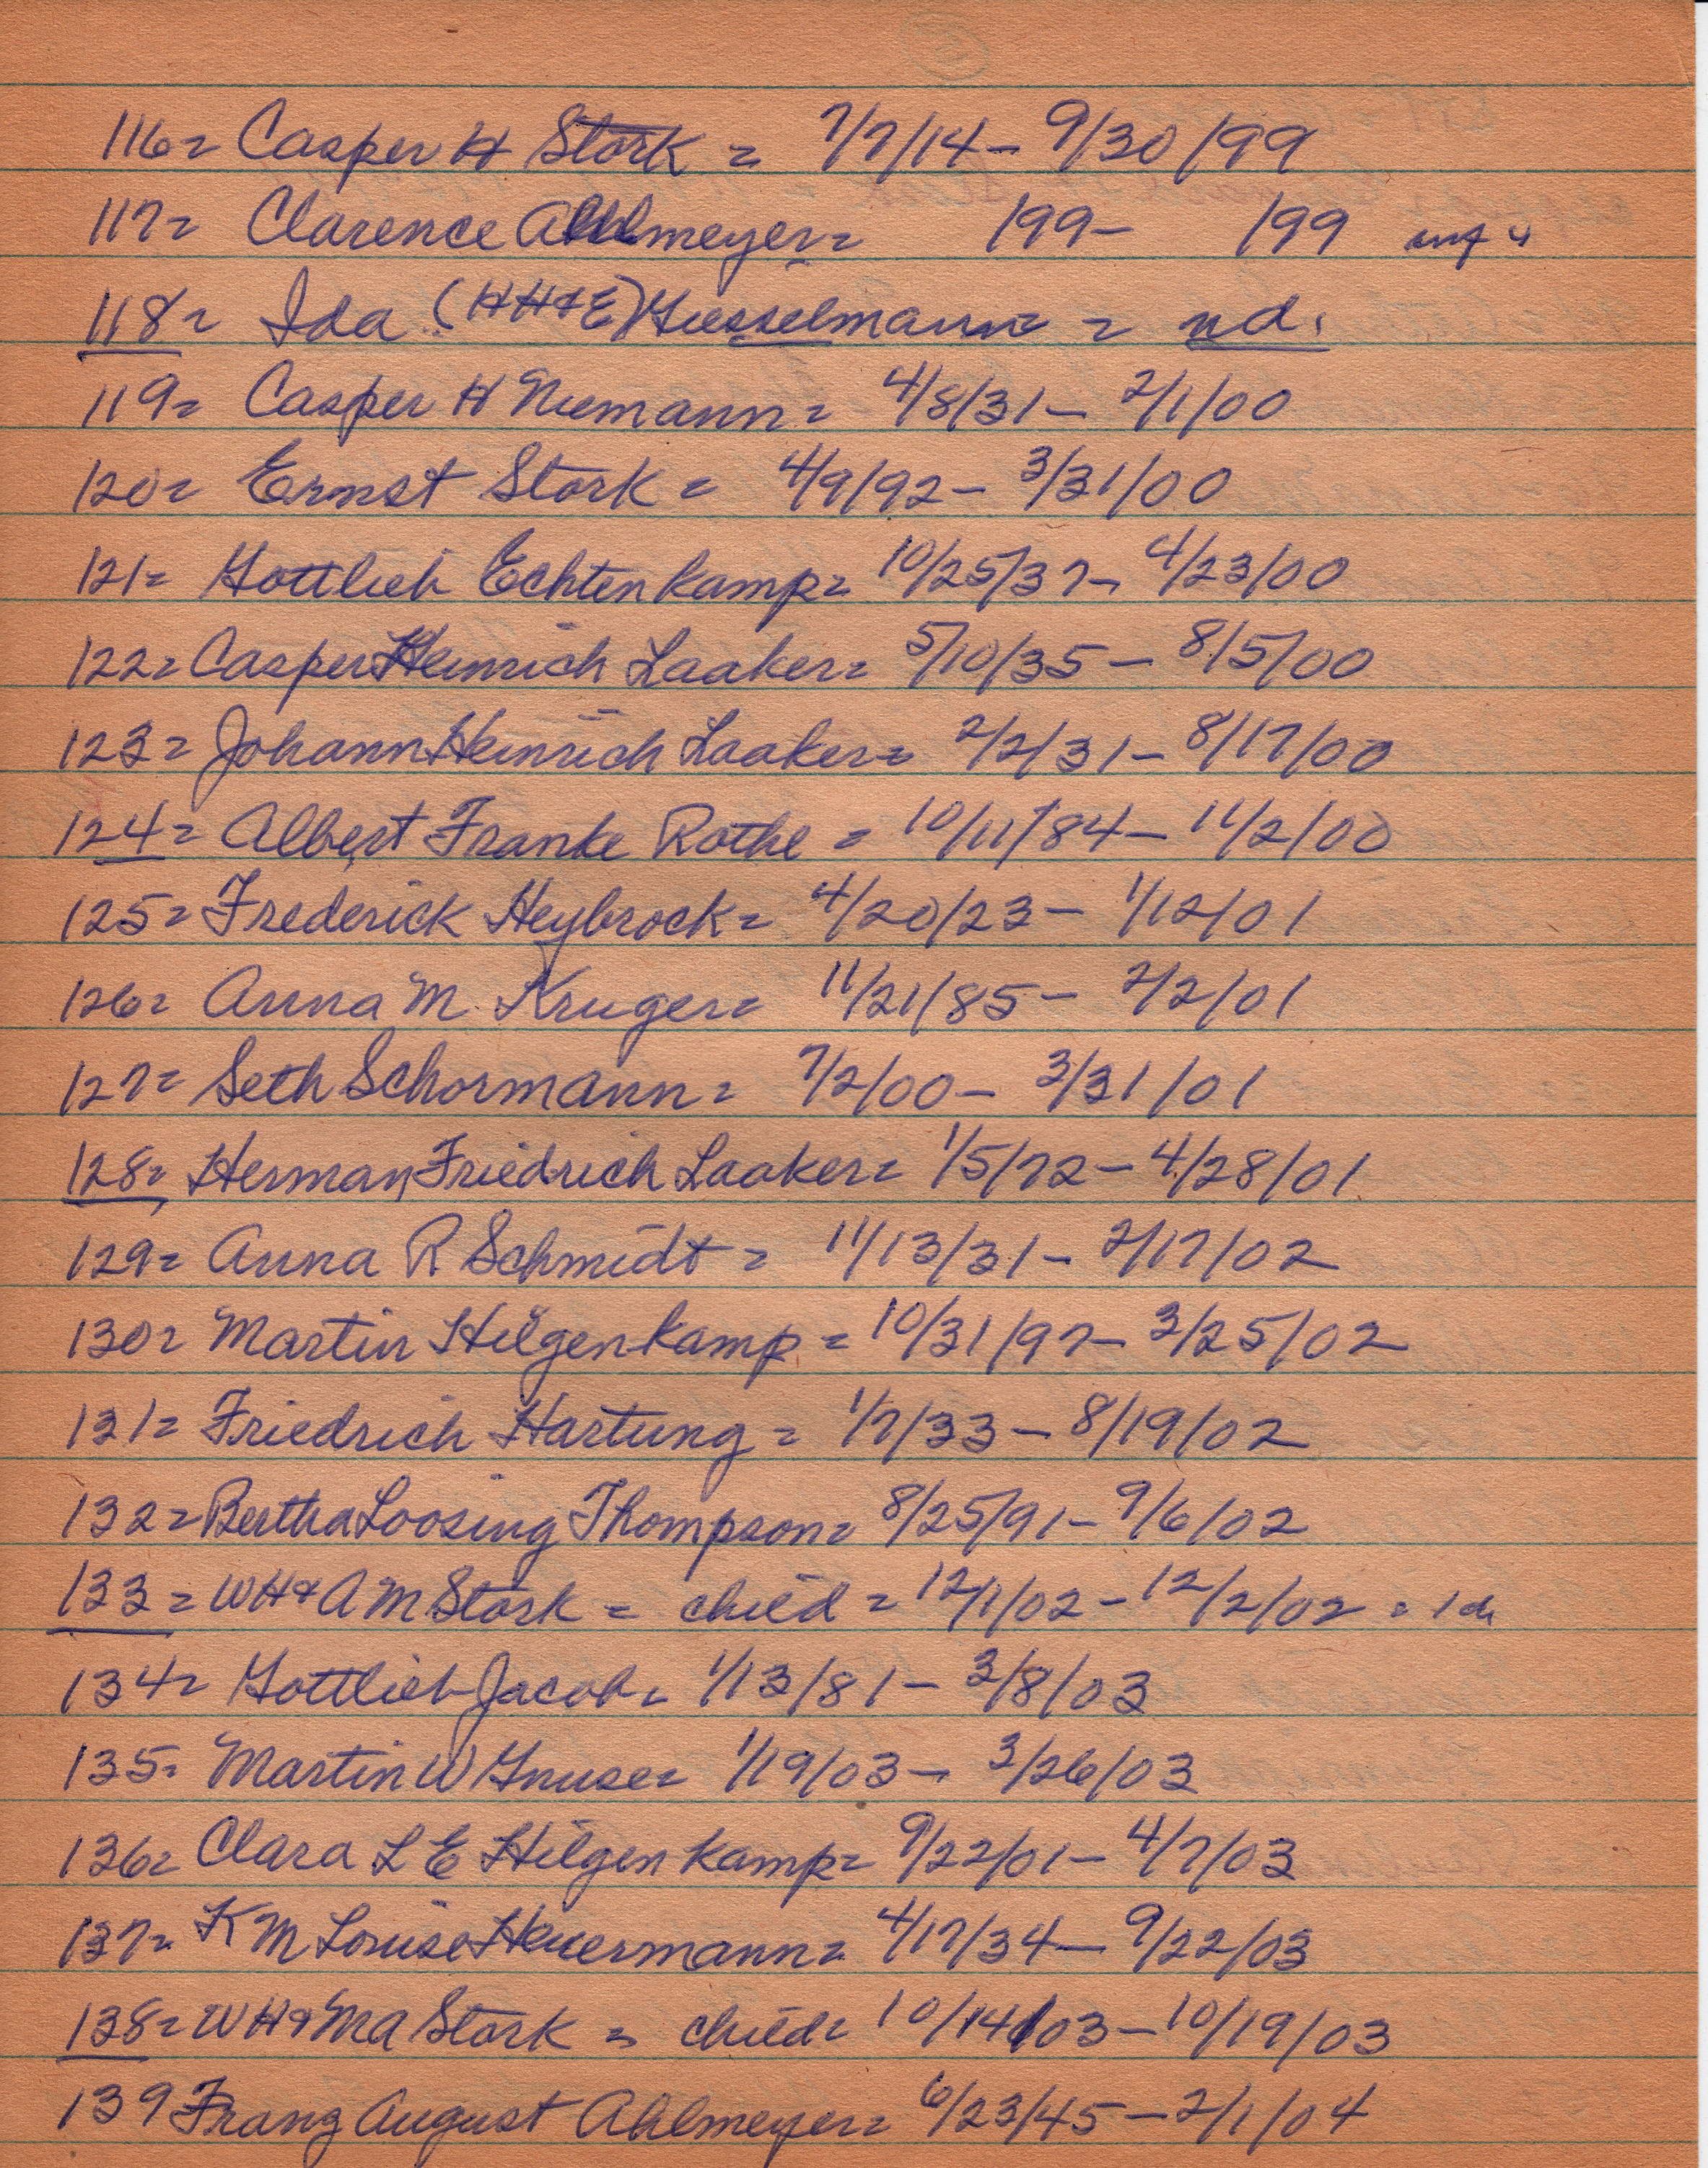 116= Casper H Stork = 7/7/14 - 9/30/99
117= Clarence Ahlmeyer= /99- /99
118= Ida (HH&E) Giesselmann = nd.
119= Casper H Niemann= 4/8/31 - 2/1/00
120= Ernst Stork = 4/9/92 - 3/31/00
121= Gottlieb Echtenkamp= 10/25/37- 4/23/00
122= Casper Heinrich Laaker= 5/10/35 - 8/5/00
123= Johann Heinrich Laaker= 2/2/31 - 8/17/00
124= Albert Franke Rothe = 10/11/84 - 11/2/00
125= Frederick Heybrock= 4/20/23 - 1/12/01
126= Anna M. Kruger= 11/21/85 - 2/2/01
127= Seth Schormann= 7/2/00 - 3/31/01
128= Herman Friedrich Laaker= 1/5/72 - 4/28/01
129= Anna R Schmidt = 11/13/31 - 2/17/02
130= Martin Hilgenkamp = 10/31/97- 3/25/02
131= Friedrich Hartung = 1/7/33 - 8/19/02
132= Bertha Loosing Thompson= 8/25/91 - 9/6/02
133= WH& AM Stork = child = 12/1/02 - 12/2/02 = 1 da
134= Gottlieb Jacob= 1/13/81 - 3/8/03
135= Martin W Gnuse= 1/19/03 - 3/26/03
136= Clara L E Hilgenkamp= 9/22/01 - 4/7/03
137= K M Louise Heuermann= 4/17/34 - 9/22/03
138= WH& MA Stork = child= 10/14/03 - 10/19/03
139 Franz August Ahlmeyer= 6/23/45 - 2/1/04